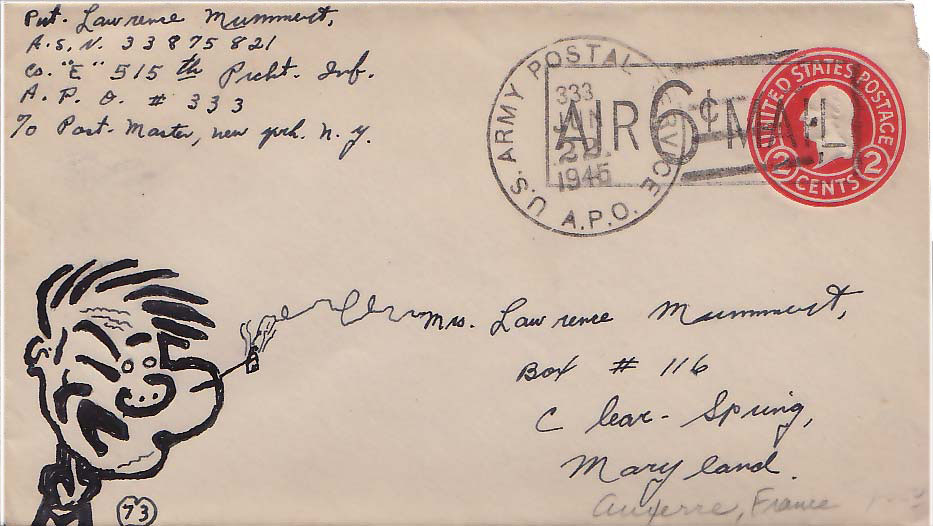 Pvt. Lawrence Mummert,
A.S.N. 33875821
Co. "E" 515th Prcht. Inf.
A.P.O. # 333
℅ Post-Master, new york. N.y.
U.S. ARMY POSTAL SERVICE
A.P.O.
333
JAN
22
1945
AIR 6¢ MAIL
UNITED STATES POSTAGE
2 CENTS 2
Mrs. Lawrence Mummert,
Box # 116
Clear-Spring,
Maryland.
Auxerre, France
73